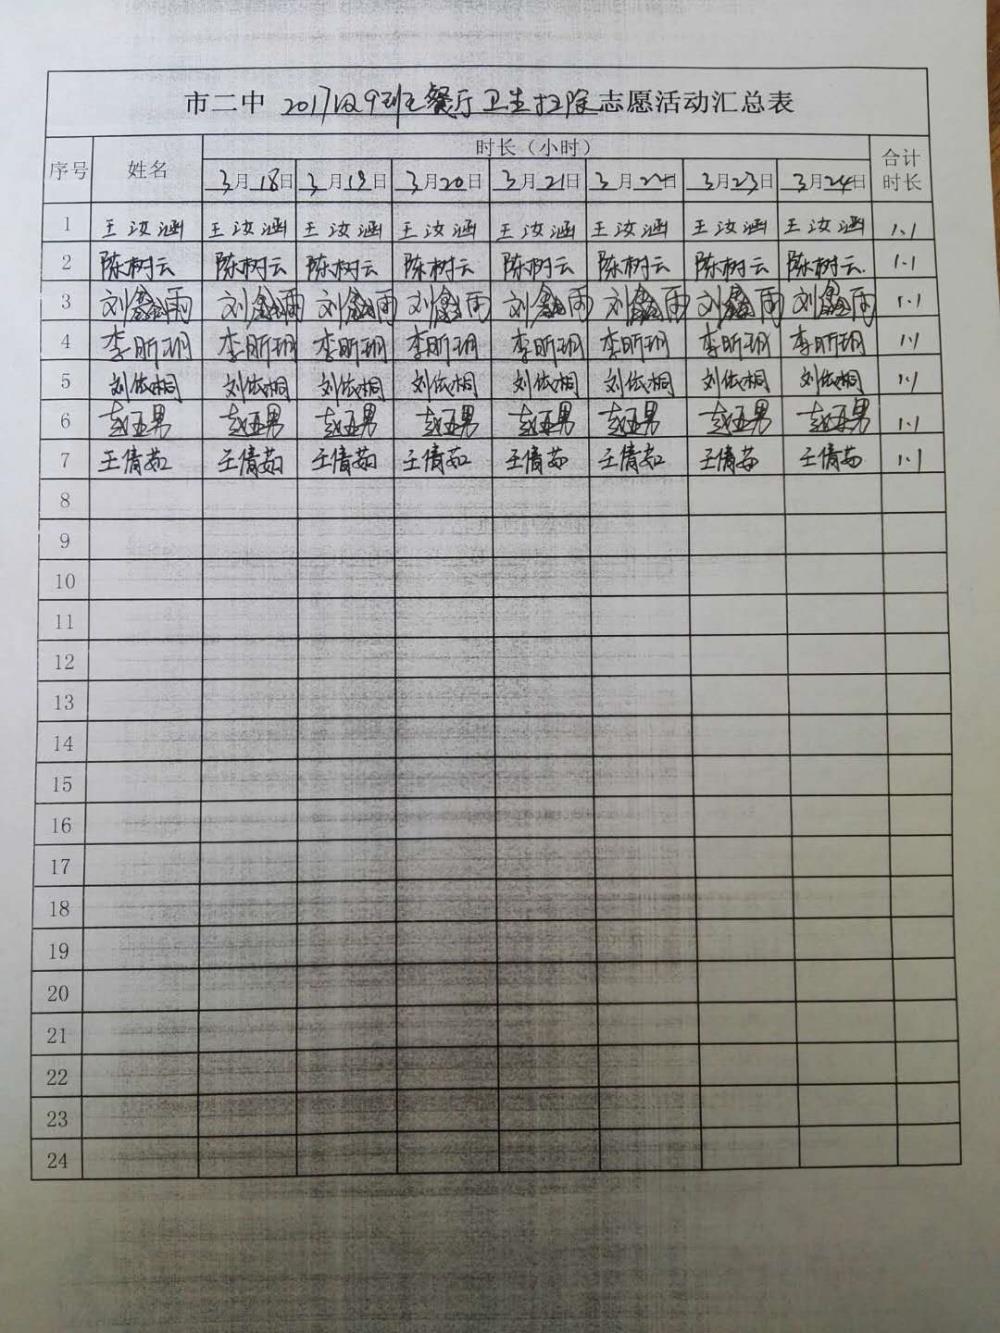 市二中 2017级9班 餐厅卫生扫除志愿活动汇总表
时长（小时）
序号 姓名 3月18日 3月19日 3月20日 3月21日 3月22日 3月23日 3月24日 合计时长
1 王汝涵 王汝涵 王汝涵 王汝涵 王汝涵 王汝涵 王汝涵 王汝涵 1.1
2 陈树云 陈树云 陈树云 陈树云 陈树云 陈树云 陈树云 陈树云 1.1
3 刘鑫雨 刘鑫雨 刘鑫雨 刘鑫雨 刘鑫雨 刘鑫雨 刘鑫雨 刘鑫雨 1.1
4 李昕玥 李昕玥 李昕玥 李昕玥 李昕玥 李昕玥 李昕玥 李昕玥 1.1
5 刘依桐 刘依桐 刘依桐 刘依桐 刘依桐 刘依桐 刘依桐 刘依桐 1.1
6 赵亚男 赵亚男 赵亚男 赵亚男 赵亚男 赵亚男 赵亚男 赵亚男 1.1
7 王倩茹 王倩茹 王倩茹 王倩茹 王倩茹 王倩茹 王倩茹 王倩茹 1.1
8
9
10
11
12
13
14
15
16
17
18
19
20
21
22
23
24